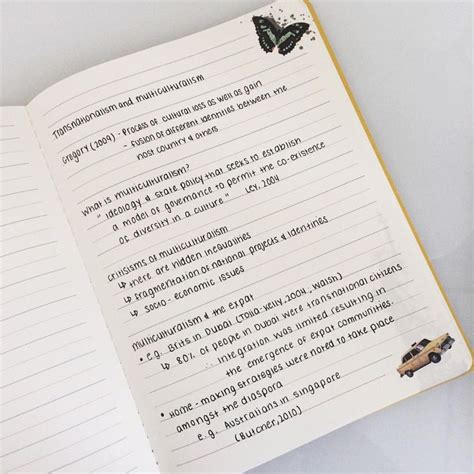 Transnationalism and multiculturalism
Gregory (2009) - Process of cultural loss as well as gain
- Fusion of different identities between the
host country & others
What is multiculturalism?
" Ideology & state policy that seeks to establish
a model of governance to permit the co-existence
of diversity in a culture" Ley, 2004
Critisisms of multiculturalism
↳ there are hidden inequalities
↳ fragmentation of national projects & identities
↳ socio - economic issues
Multiculturalism & the expat
• e.g. Brits in Dubai (Coles, Walsh)
↳ 80% of people in Dubai were transnational citizens
∴ integration was limited resulting in
the emergence of expat communities.
• Home - making strategies were noted to take place
amongst the diaspora
e.g. Australians in Singapore
(Butcher, 2010)